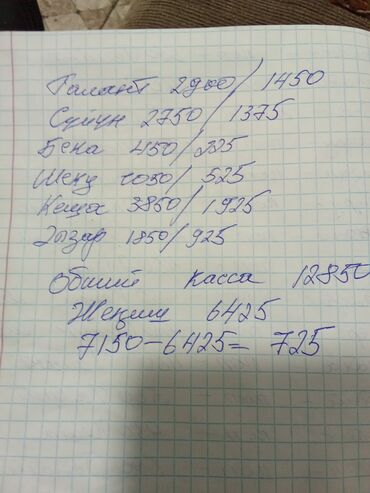 Талант 2900/1450
Суйун 2750/1375
Бека 450/225
Шеку 1050/525
Кеша 3850/1925
Ызар 1850/925
Общий касса 12850
Жеңиш 6425
7150-6425= 725